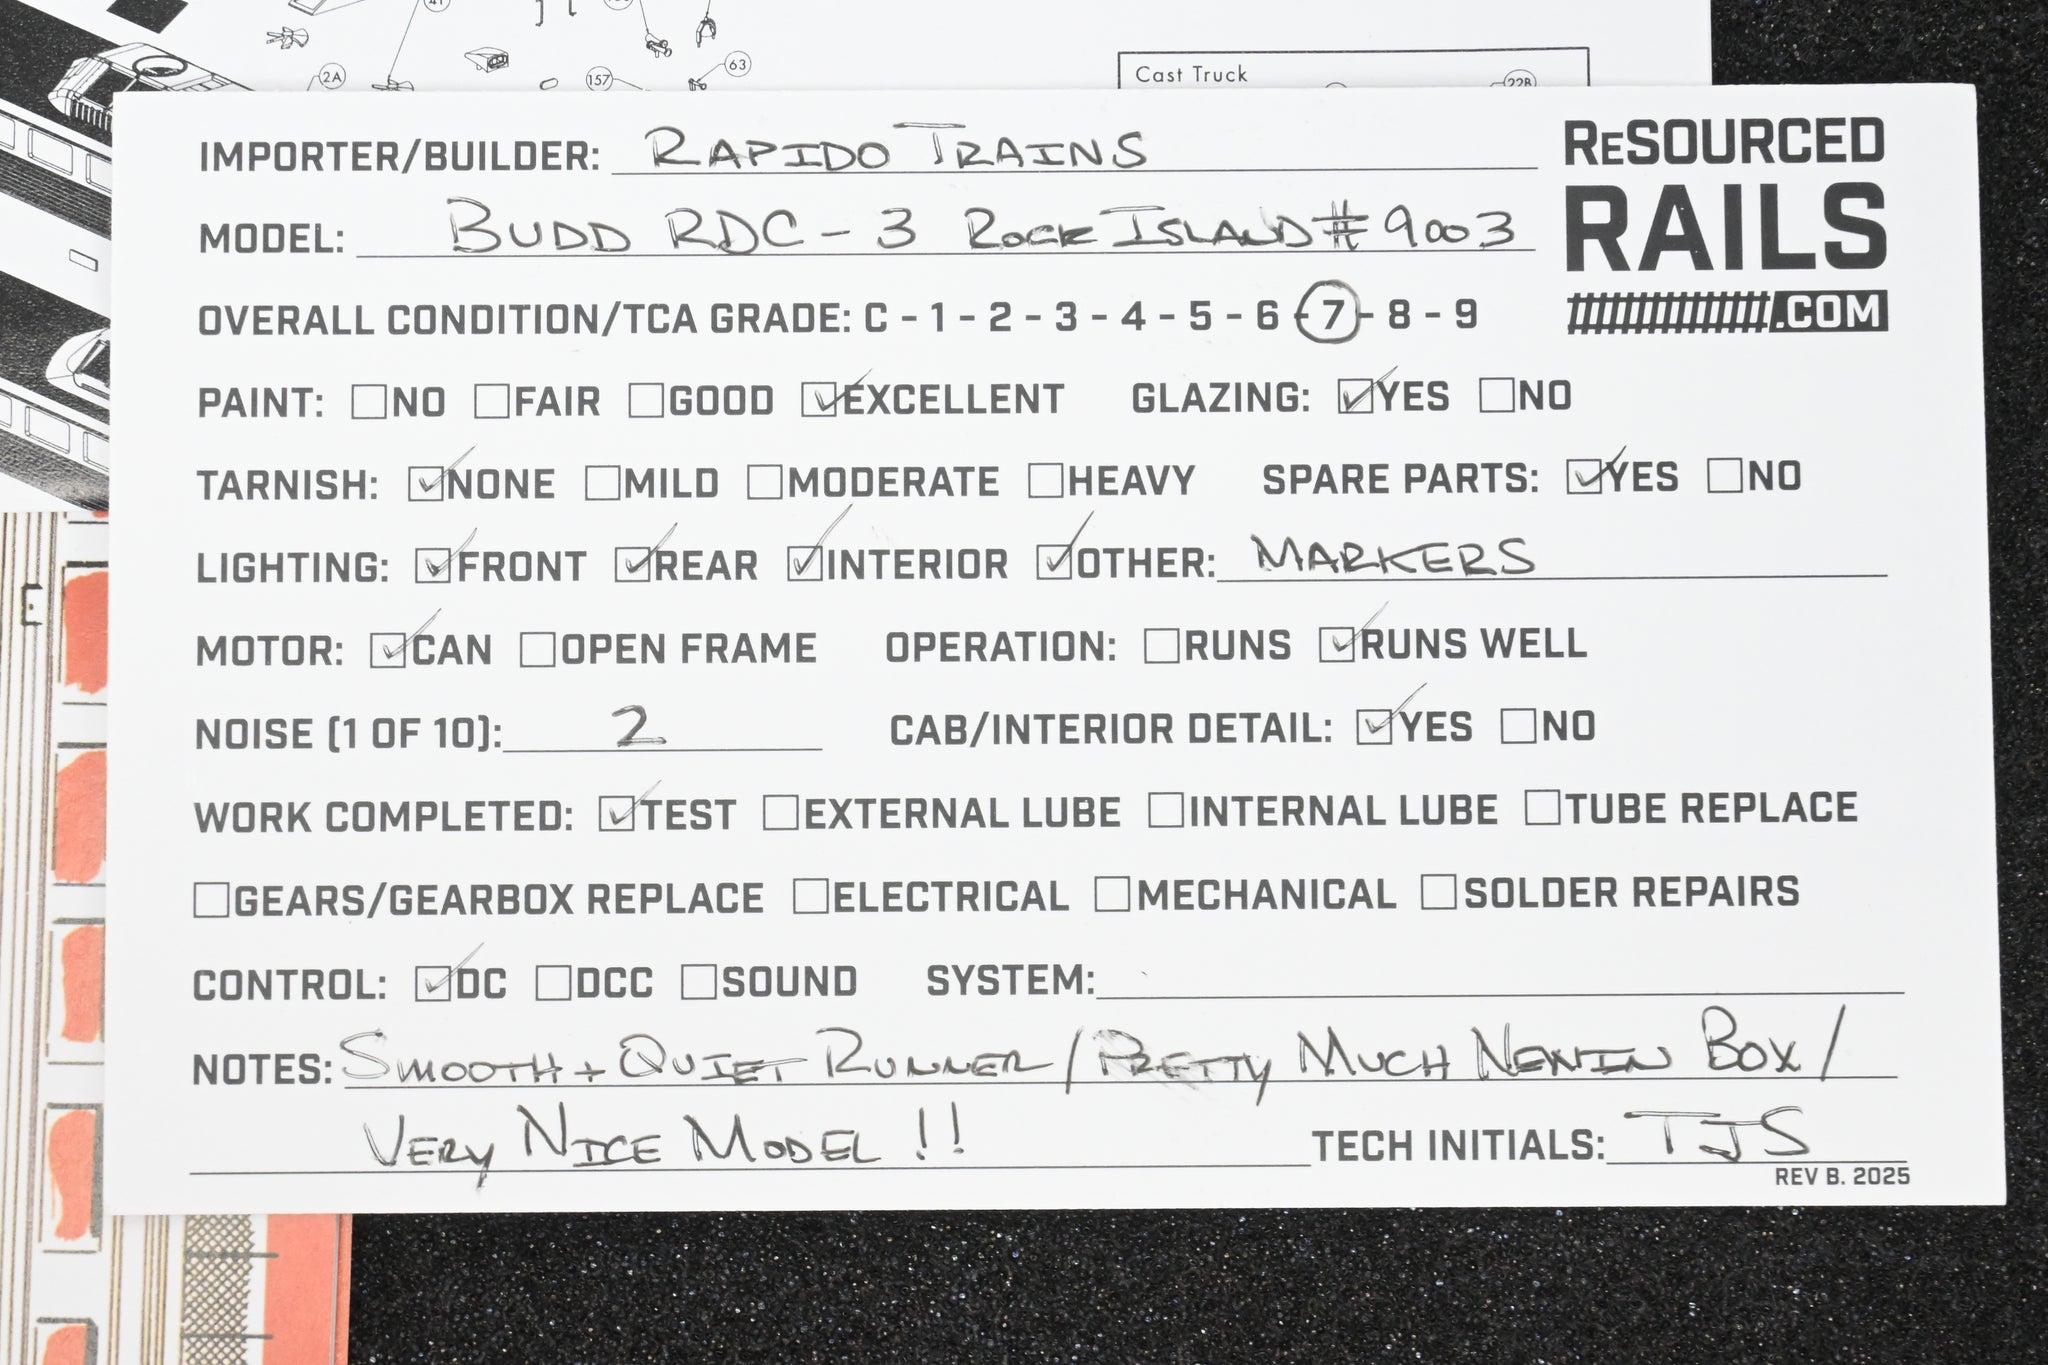 41
2A
157
63
Cast Truck
22B
IMPORTER/BUILDER: RAPIDO TRAINS
ReSOURCED
RAILS
.COM
MODEL: BUDD RDC-3 ROCK ISLAND #9003
OVERALL CONDITION/TCA GRADE: C - 1 - 2 - 3 - 4 - 5 - 6 - 7 - 8 - 9
PAINT: ☐NO ☐FAIR ☐GOOD ☑EXCELLENT GLAZING: ☑YES ☐NO
TARNISH: ☑NONE ☐MILD ☐MODERATE ☐HEAVY SPARE PARTS: ☑YES ☐NO
LIGHTING: ☑FRONT ☑REAR ☑INTERIOR ☑OTHER: MARKERS
E
MOTOR: ☑CAN ☐OPEN FRAME OPERATION: ☐RUNS ☑RUNS WELL
NOISE (1 OF 10): 2 CAB/INTERIOR DETAIL: ☑YES ☐NO
WORK COMPLETED: ☑TEST ☐EXTERNAL LUBE ☐INTERNAL LUBE ☐TUBE REPLACE
☐GEARS/GEARBOX REPLACE ☐ELECTRICAL ☐MECHANICAL ☐SOLDER REPAIRS
CONTROL: ☑DC ☐DCC ☐SOUND SYSTEM:
NOTES: SMOOTH + QUIET RUNNER / PRETTY MUCH NEW IN BOX /
VERY NICE MODEL !! TECH INITIALS: TJS
REV B. 2025